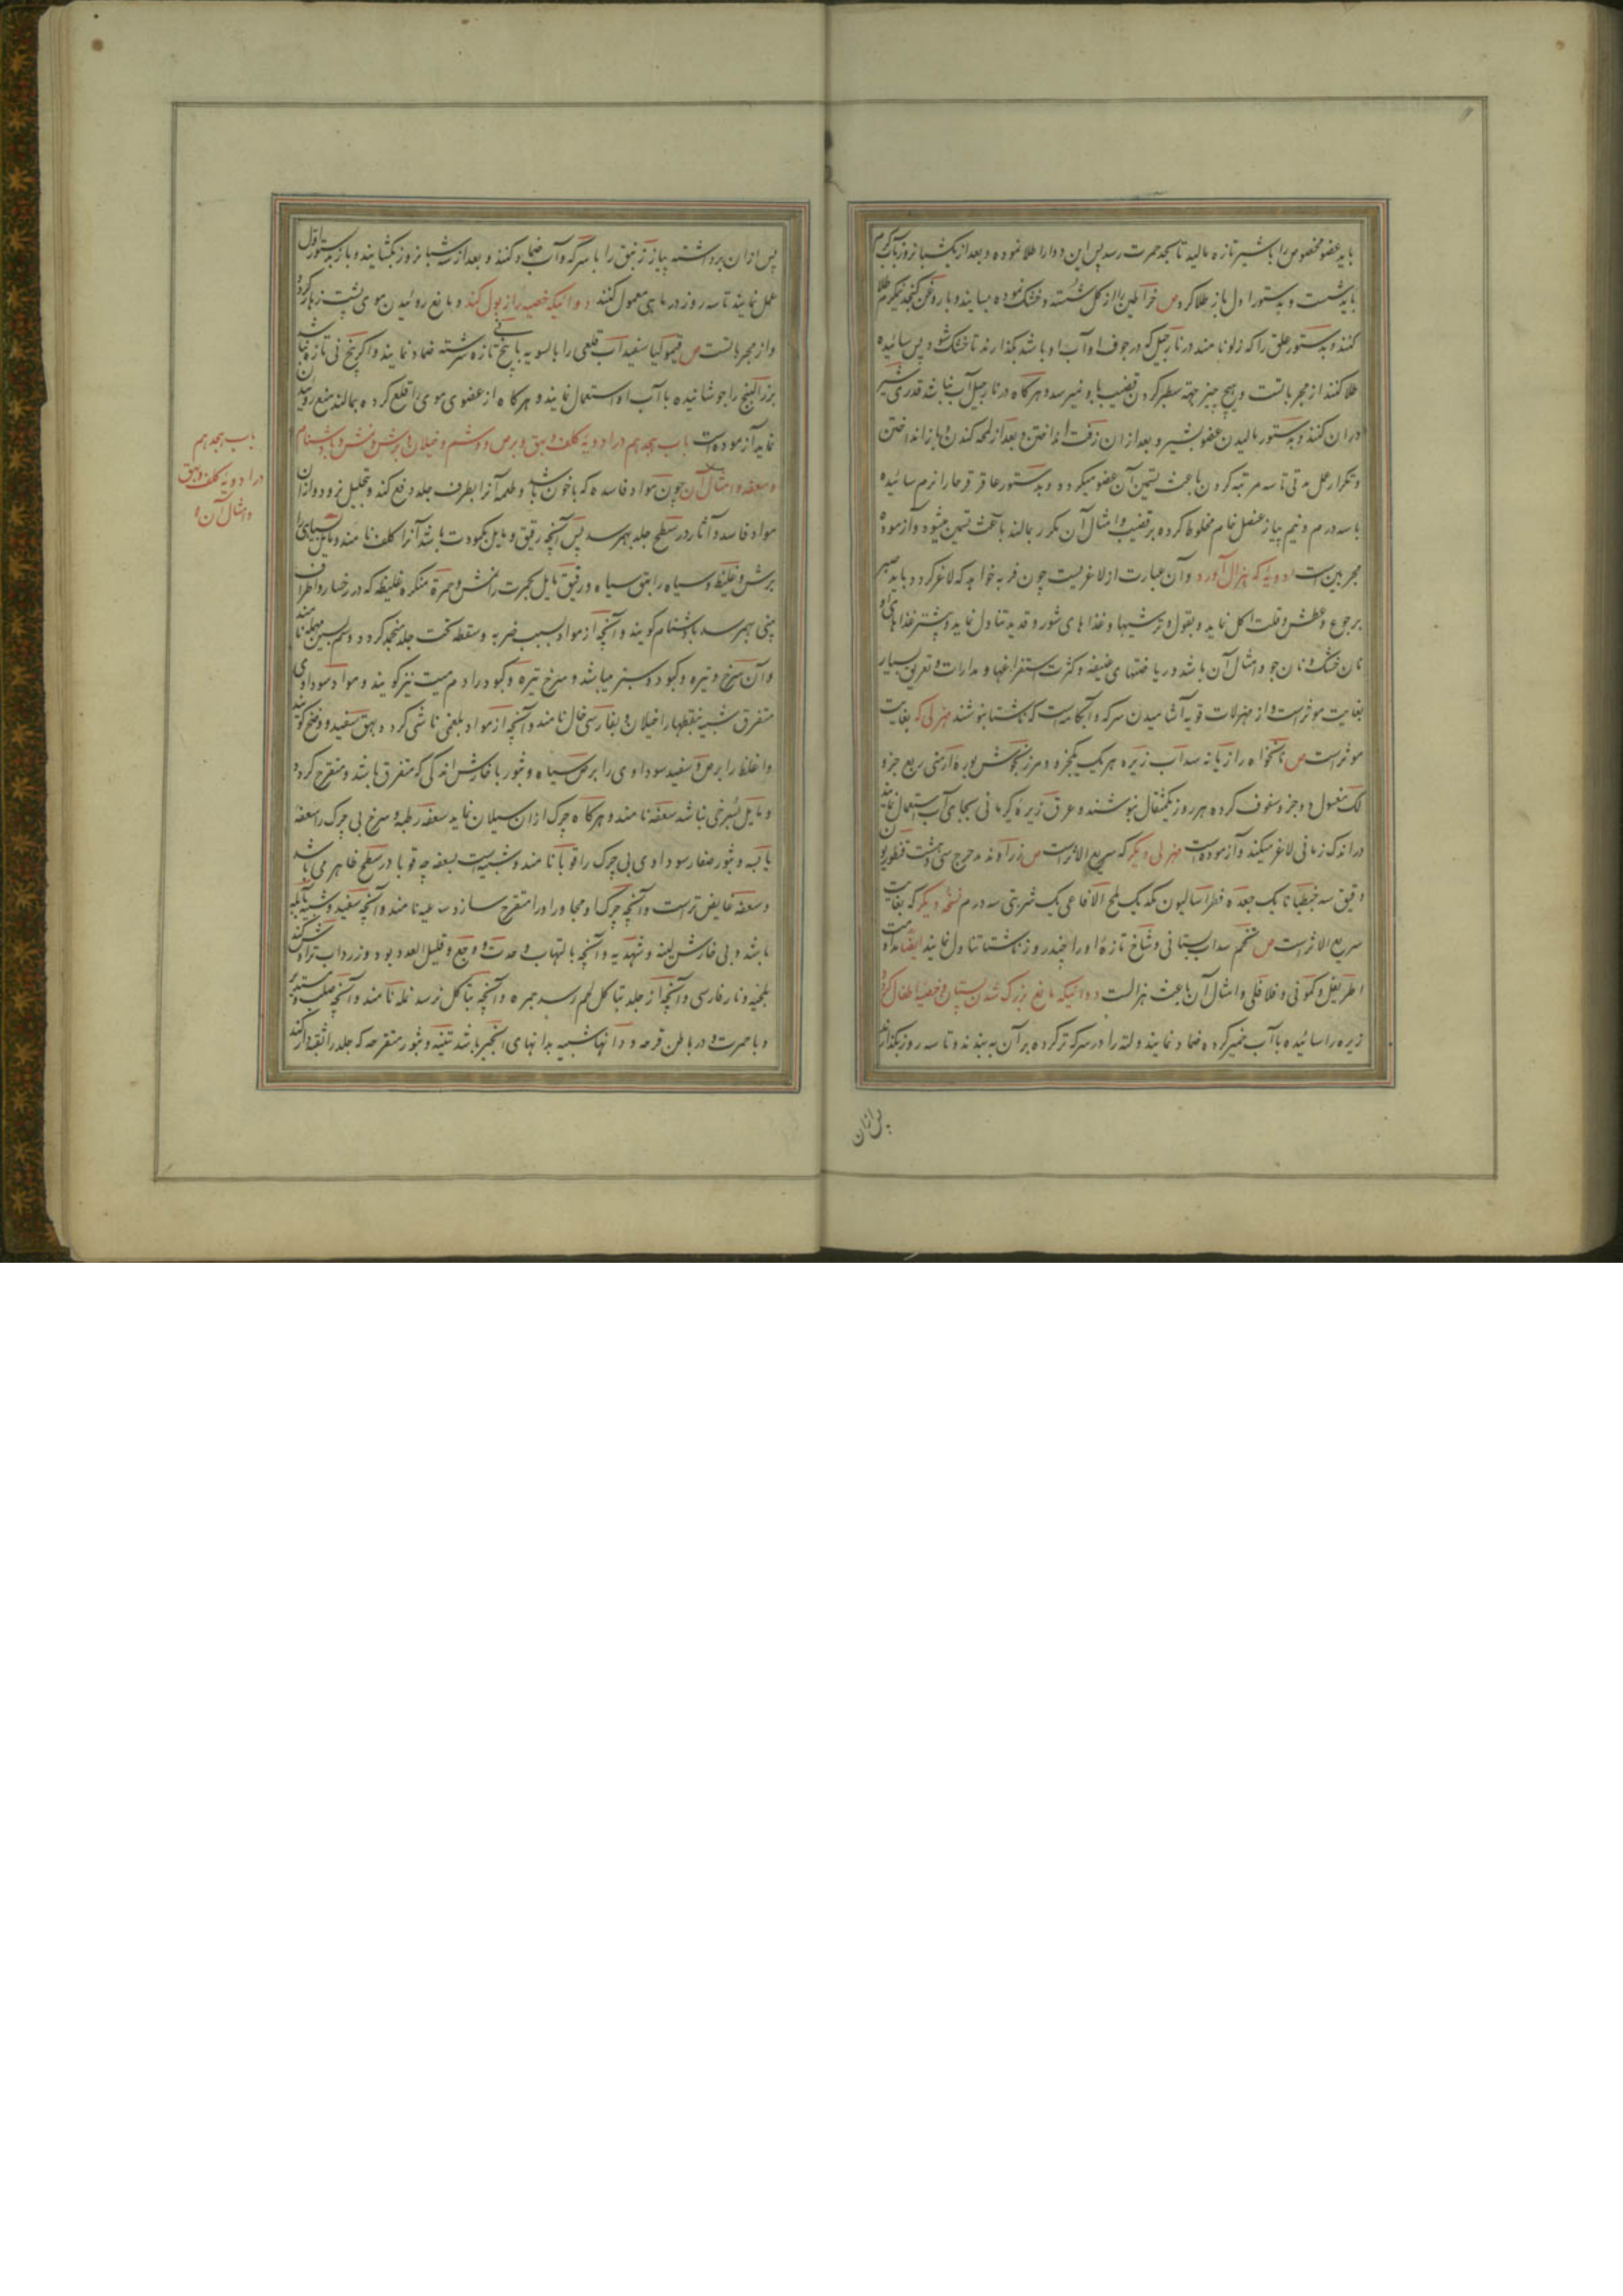 باید عضو مخصوص را با شیر تازه مالید تا بحد حمرت رسد پس این دوا را طلا نموده و بعد از یکشبانروز بآب گرم
باید شست و بدستور اول باز طلا کرد ص خراطین را از کل شسته و خشک نموده بسایند و با روغن کنجد نیکرم طلا
کنند و بدستور علق را که زلو نامند در نارجیل که در جوف او آب او باشد بگذارند تا خشک شود پس سائیده
طلا کنند از مجرباتست و هیچ چیز جهة سطبر کردن قضیب باو نمیرسد و هرگاه در نارجیل آب نباشد قدری شیر
در ان کنند و بدستور مالیدن عضو بشیر و بعد از ان زفت انداختن و بعد از لمحه کندن و باز انداختن
و تکرار عمل تا سه مرتبه کردن باعث تسمین آن عضو میگردد و بدستور عاقر قرحا را نرم سائیده
با سه درم و نیم پیاز عنصل خام مخلوط کرده بر قضیب و امثال آن مکرر بمالند باعث تسمین میشود و آزموده
مجربین است ادویه که هزال آورد و آن عبارت از لاغریست چون فربه خواهد که لاغر گردد باید صبر
بر جوع و عطش و قلت اکل نماید و بقول و ترشیها و غذاهای شور و قدید تناول نماید و بیشتر غذاهای او
نان خشک و نان جو و امثال آن باشد و ریاضتهای عنیفه و کثرت استفراغها و مدرات و تعریق بسیار
بغایت موثر است و از مهزلات قویه آشامیدن سرکه و آبکامه است که ناشتا بنوشند مهزلی که بغایت
موثر است ص نانخواه رازیانه سداب زیره هر یک یکجزو و مرزنجوش بوره ارمنی ربع جزو
لک مغسول دو جزو سفوف کرده هر روز یکمثقال بنوشند و عرق زیره کرمانی بجای آب استعمال نمایند
در اندک زمانی لاغر میکند و آزموده است مهزلی دیگر که سریع الاثر است ص زراوند مدحرج سی و هشت قنطوریون
دقیق سه جنطیانا یک جعده فطراسالیون نمک یک ملح الافاعی یک شربتی سه درم نسخه دیگر که بغایت
سریع الاثر است ص تخم سداب بستانی و شاخ تازه او را چند روز ناشتا تناول نمایند ایضا مداومت
اطریفل و کمونی و فلافلی و امثال آن باعث هزالست دوائیکه مانع بزرگ شدن پستان و خصیه اطفال گردد
زیره را سائیده با آب خمیر کرده ضماد نمایند و لته را در سرکه تر کرده بر آن به بندند و تا سه روز بگذارند
پس از ان
پس از ان برداشته پیاز زنبق را با سرکه و آب ضماد کنند و بعد از سه شبانروز بگشایند و باز بدستور اول
عمل نمایند تا سه روز در ماهی معمول کنند دوائیکه خصیه را زبول کند و مانع روئیدن موی پشت زهار گردد
و از مجرباتست ص قیمولیا سفیداب قلعی را بالسویه با بیخ تازه سرشته ضماد نمایند و اگر بیخ نی تازه نباشد
بزر البنج را جوشانیده با آب او استعمال نمایند و هرگاه از عضوی موی را قلع کرده بمالند منع روئیدن
نماید آزموده است باب هجدهم در ادویه کلف و بهق و برص و وشم و خیلان و برش و نمش و بادشنام
و سعفه و امثال آن چون مواد فاسده که با خون باشد و طبیعت آنرا بطرف جلد دفع کند و تحلیل نرود و از ان
مواد فاسد و آثار در سطح جلد بهمرسد پس آنچه رقیق و مایل بکمودت باشد آنرا کلف نامند و مایل بسیاهی را
برش و غلیظ و سیاه را بهق سیاه و رقیق مایل بحمرت را نمش و حمرة منکره غلیظه که در رخسار و اطراف
بینی بهمرسد بادشنام گویند و آنچه از مواد بسبب ضربه و سقطه تحت جلد منجمد گردد وسم بسین مهمله نامند
و آن سرخ و تیره و کبود و سبز میباشد و سرخ تیره و کبود را دم میت نیز گویند و مواد سوداوی
متفرق شبیه بنقطها را خیلان و بفارسی خال نامند و آنچه از مواد بلغمی ناشی گردد بهق سفید و وضح گویند
و اغلظ را برص سفید سوداوی را برص سیاه و بثور با خارش اندکی که متفرق باشد و متقرح گردد
و مایل بسرخی باشد سعفه نامند و هرگاه چرک از ان سیلان نماید سعفه رطبه و سرخ بی چرک را سعفه
یابسه و بثور صغار سوداوی بی چرک را قوبا نامند و شبیه است بسعفه چه قوبا در سطح ظاهر می باشد
و سعفه غایض تر است و آنچه چرک او مجاور او را متقرح سازد ساعیه نامند و آنچه سفید و شبیه بآبله
باشد و بی خارش لبنه و شهدیه و آنچه با لتهاب و حدت و وجع و قلیل العدد بود و زرداب تراوش کند
بلخیه و نار فارسی و آنچه از جلد بتاکل لحم رسد جمره و آنچه بتاکل نرسد نمله نامند و آنچه صلب و مستدیر
و با حمرت و در باطن قرحه و دانها شبیه بدانهای انجیر باشد تینیه و بثور متقرحه که جلد را ثقبه دار کند
باب هجدهم
در ادویه کلف و بهق
و امثال آن